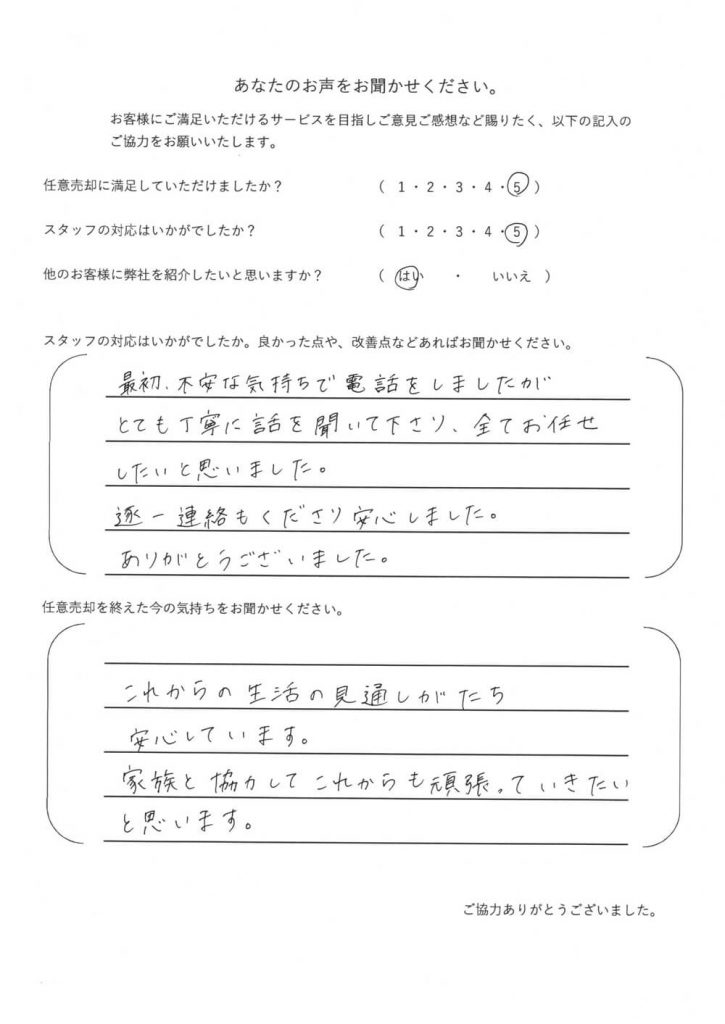 あなたのお声をお聞かせください。
お客様にご満足いただけるサービスを目指しご意見ご感想など賜りたく、以下の記入の
ご協力をお願いいたします。
任意売却に満足していただけましたか？ （ 1・2・3・4・5 ）
スタッフの対応はいかがでしたか？ （ 1・2・3・4・5 ）
他のお客様に弊社を紹介したいと思いますか？ （ はい ・ いいえ ）
スタッフの対応はいかがでしたか。良かった点や、改善点などあればお聞かせください。
最初、不安な気持ちで電話をしましたが
とても丁寧に話を聞いて下さり、全てお任せ
したいと思いました。
逐一連絡もくださり安心しました。
ありがとうございました。
任意売却を終えた今の気持ちをお聞かせください。
これからの生活の見通しがたち
安心しています。
家族と協力してこれからも頑張っていきたい
と思います。
ご協力ありがとうございました。